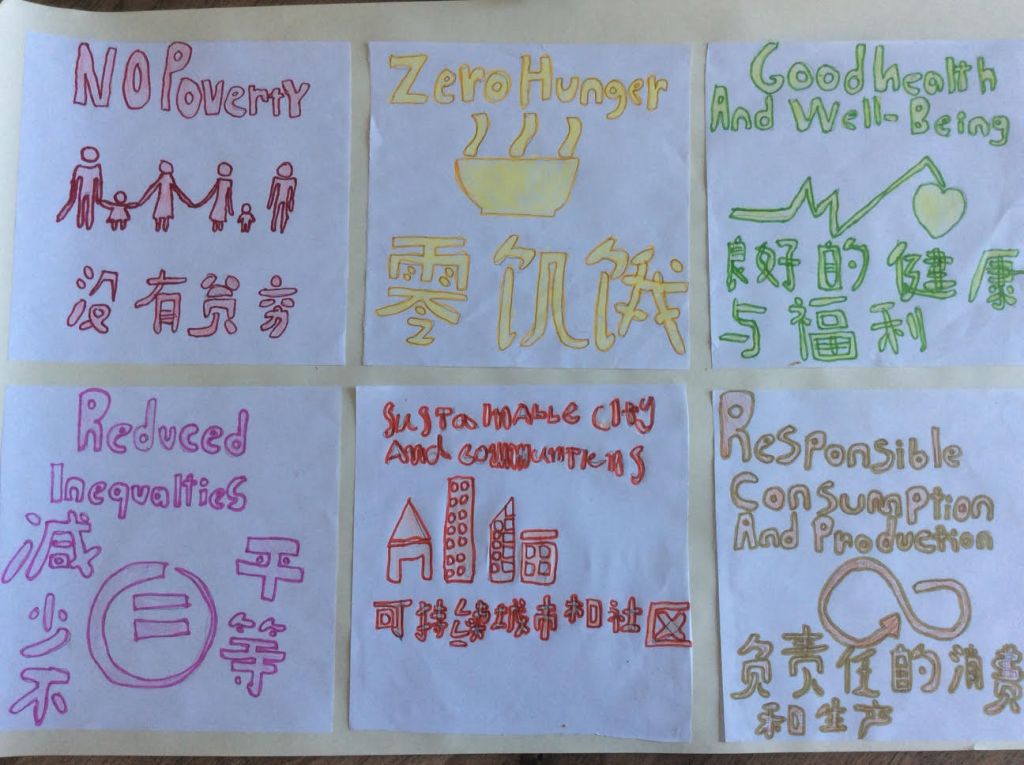 No Poverty
没有贫穷
Zero Hunger
零饥饿
Good health
And Well-Being
良好的健康
与福利
Reduced
Inequalties
减少不
平等
Sustainable City
And communitiens
可持续城市和社区
Responsible
Consumption
And Production
负责任的消费
和生产